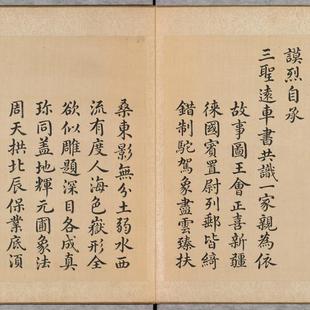 謨烈自承
三聖遠車書共識一家親為依
故事圖王會正喜新疆
徠國賓置尉列郵皆綺
錯制駝駕象盡雲臻扶
桑東影無分土弱水西
流有度人海色嶽形全
欲似雕題深目各成真
珎同盖地輝元圃象法
周天拱北辰保業底湏